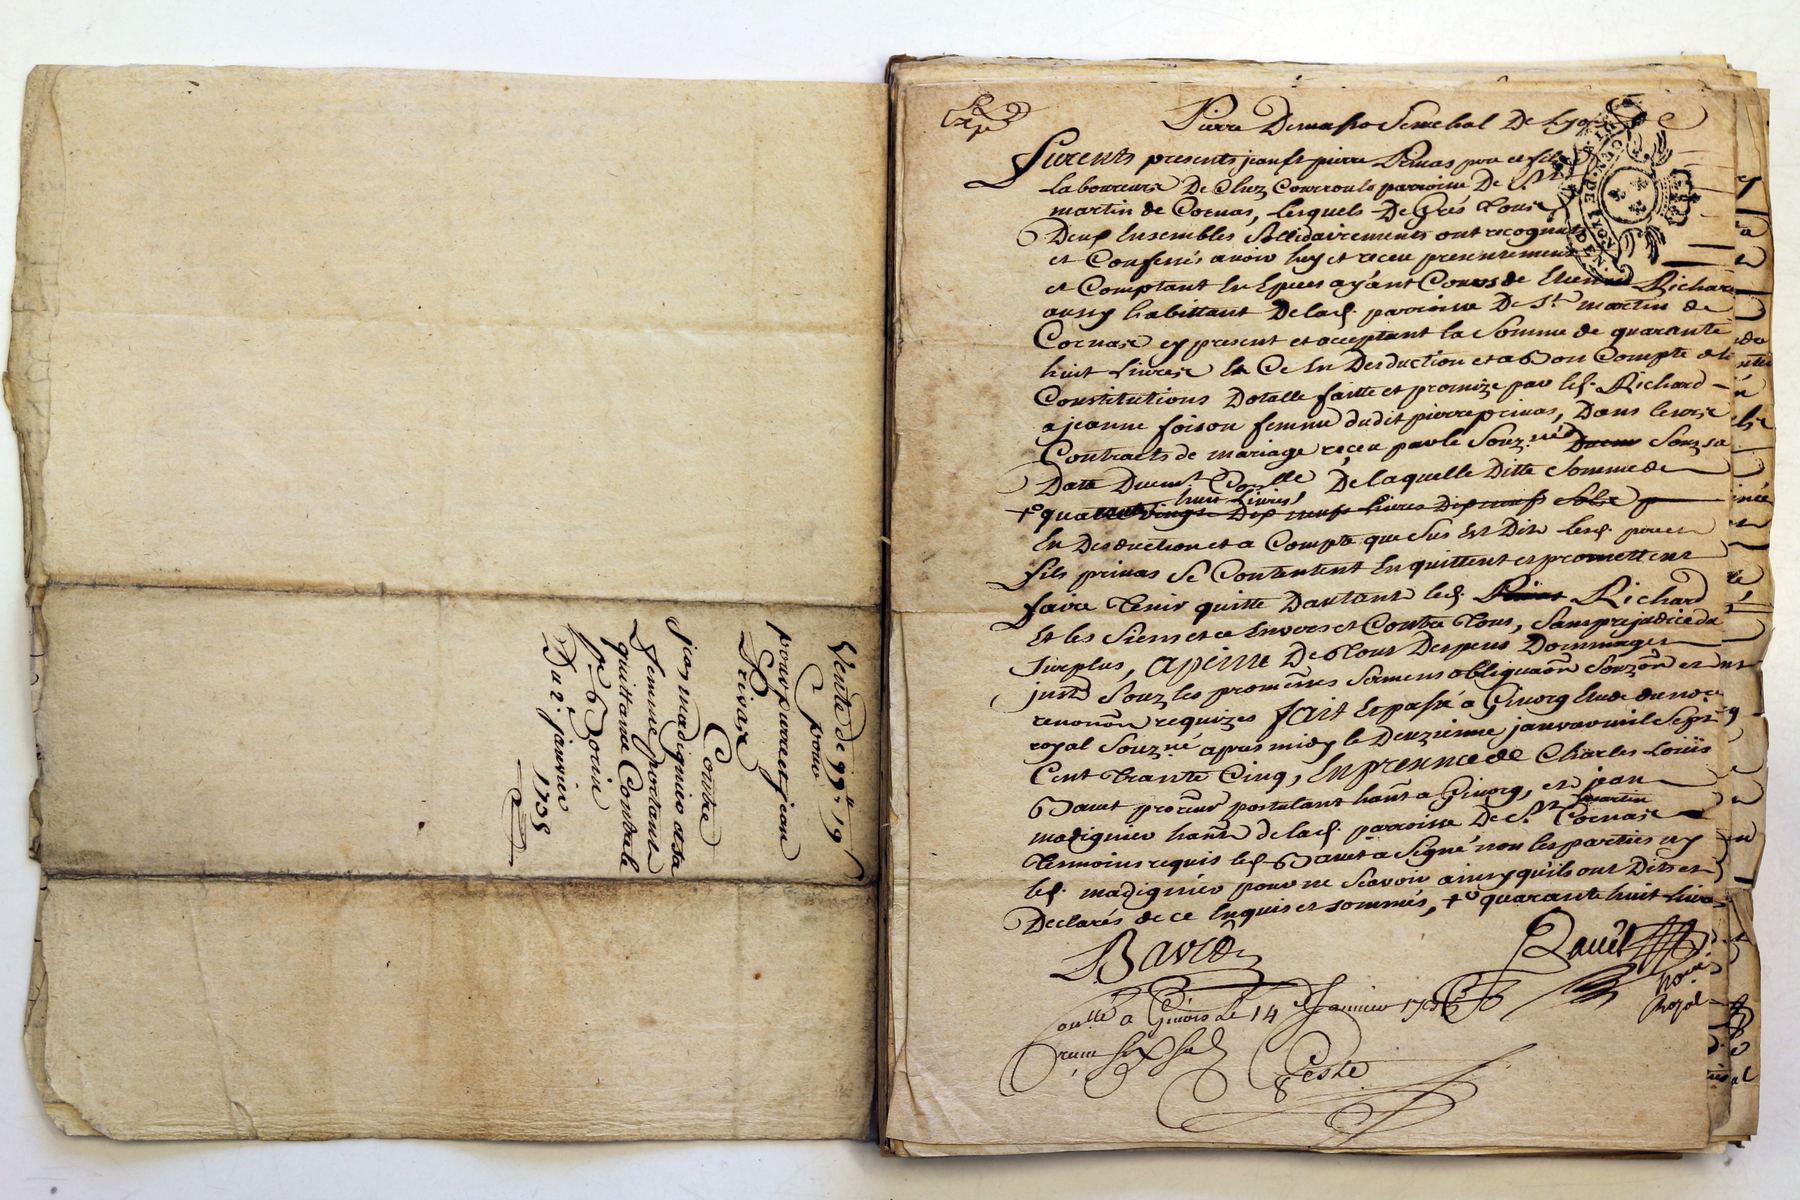 Vente de 99ll 19s
pour
pour pierre et jean
Privas
Contre
jean madignier et sa
femme portant
quittance
Du 2e janvier
1735
Pierre Demasso Senechal De Lyon
GEN. DE LYON
Furents presents jean et pierre Privas pere et fils
laboureurs De parroisse De St
martin de Cornas, lesquels De Grés tous
Deux Ensembles Sollidairements ont recognus
et Confessés avoir huy et receu presentement
et Comptant En Especes ayant Cours de Etienne Richard
aussy habittant De lad. parroisse De St martin de
Cornas cy present et acceptant la Somme de quarante
huit Livres En Ce En Desduction et a Bon Compte de la
Constitutions Dotalle faitte et promize par led. Richard
a jeanne foison femme dudit pierre privas, Dans leurs
Contracts de mariage receu par le Souz.né Souz sa
Datte Duemt Coll.le De laquelle Ditte Somme de
huit Livres
+o quarante
En Desduction et a Compte que Sus Est Dit lesd. pere et
fils privas Se Contentent En quittent et promettent
faire Tenir quitte Dautant led. Richard
Et les Siens et ce Envers et Contre Tous, Sans prejudice du
Surplus, apeine De Tous Despens Dommages
souz les Sermens obligaon Souzon et
renonon requizes fait Et passé a Givorg Etude du nore
royal Souz.né apres midy le Deuzieme janvier mil Sept
Cent Trante Cinq, En presence de Charles Louïs
Bavet procur postulant hant a Givorg, et jean
martin
madignier hant de lad. parroisse De St Cornas
Temoins requis led. Bavet a Signé non les parties ny
led. madignier pour ne Scavoir ainsy quils ont Dits et
Declarés de ce Enquis et sommés, +o quarante huit Livres
Bavet
nore
Royal
Conllé a Givors Le 14 Janvier 1735